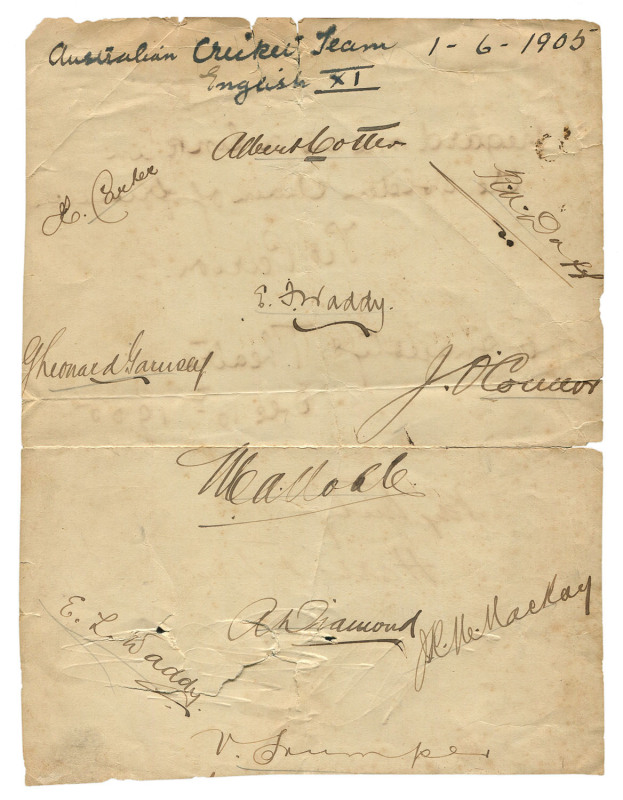 Australian Cricket Team 1-6-1905
English XI
Albert Cotter
H. Carter
R.A. Duff
E. F. Waddy.
G Leonard Garnsey
J. O'Connor
E. L. Waddy.
A Diamond
J.R.M. Mackay
V. Trumper